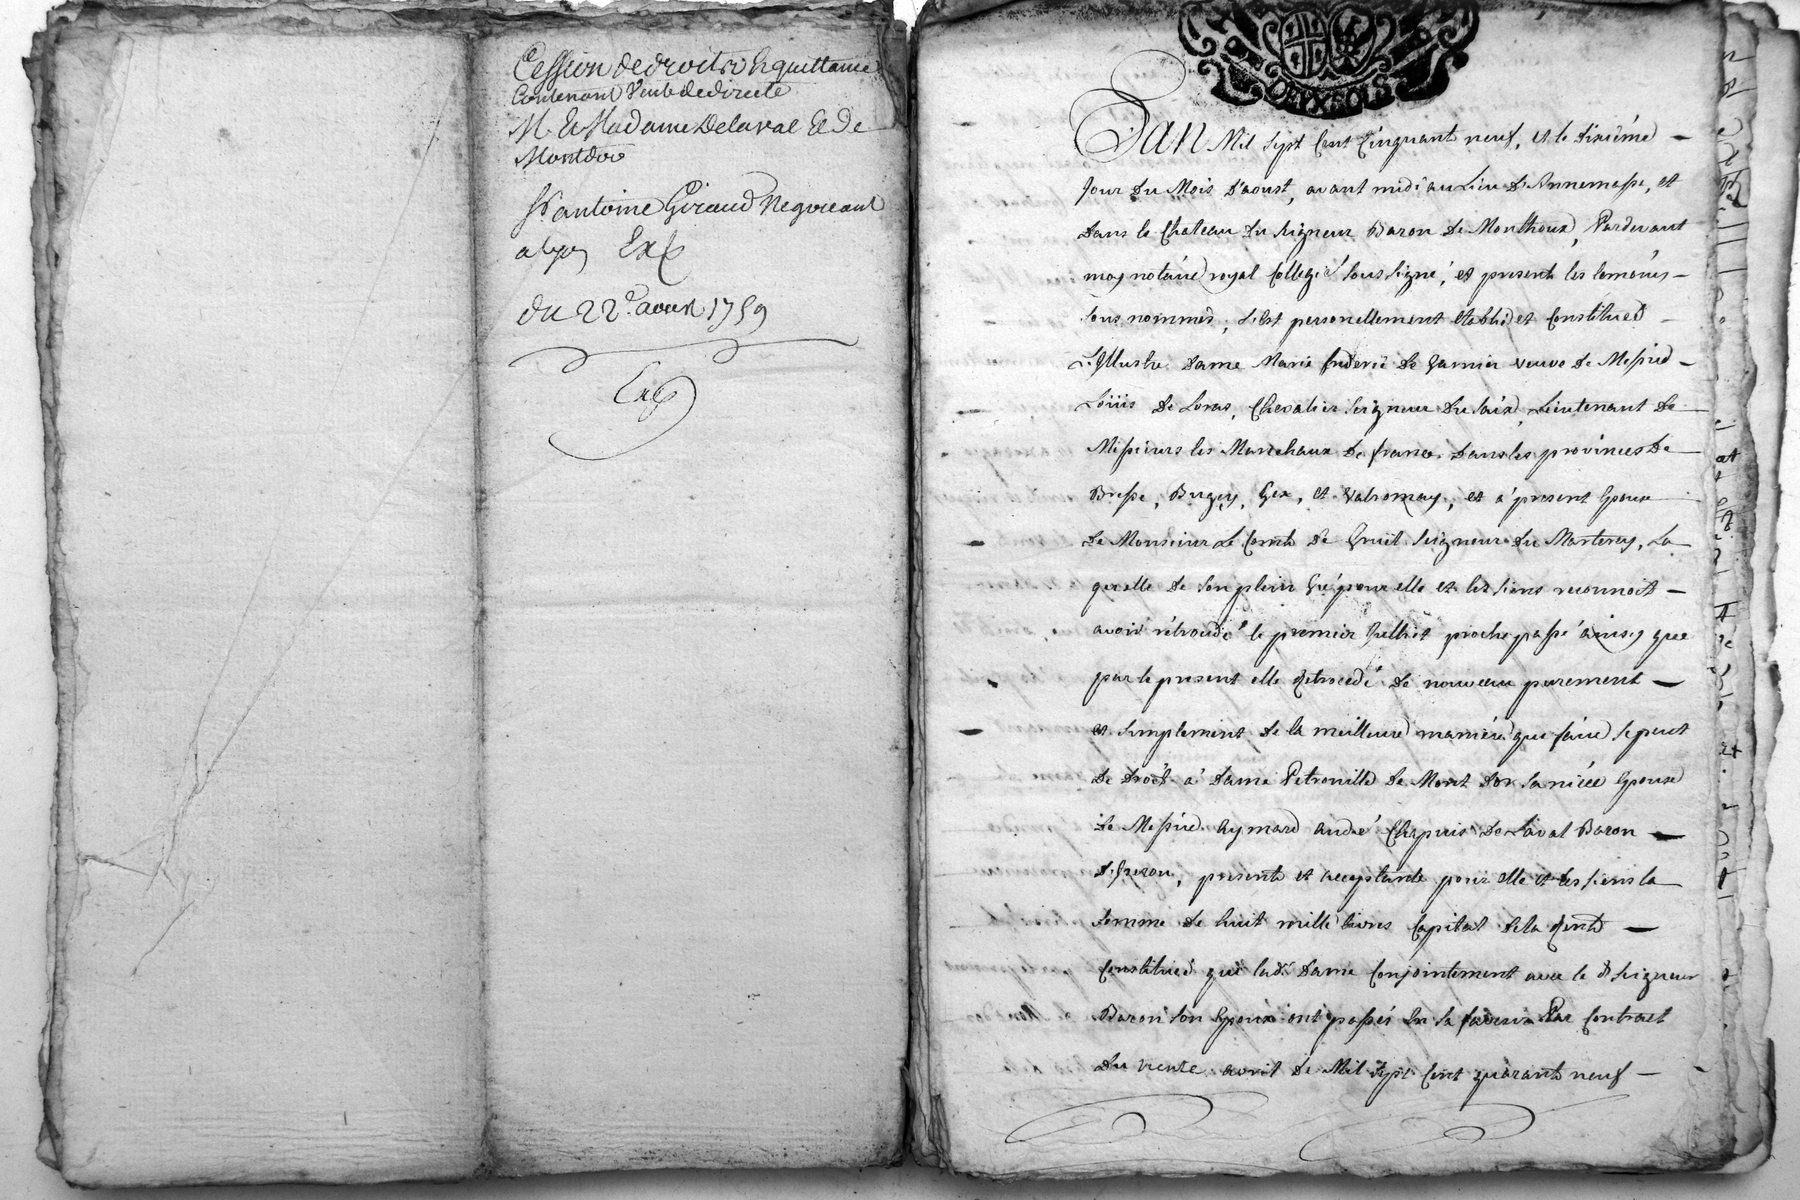 Cession de droits En quittance
Contenant Vente de directe
M. Et Madame Delaval Et de
Montdor
Sr. antoine Giraud Negociant
a lyon Ex
du 22e. aoust 1759
Exp
DEUX SOLS
L'an Mil sept Cent Cinquant neuf, et le dixiéme
Jour du Mois d'aoust, avant midi au Lieu d'Annemasse, et
dans le Chateau du seigneur Baron de Monthoux, Pardevant
moy notaire royal Collegié sous signé, et presents les temoins
sous nommés, s'est personellement etablie et Constituée
L'Illustre dame Marie de Garnier veuve de Messire
Loüis de Loras, Chevalier seigneur du saix, Lieutenant de
Messieurs les Marechaux de france dans les provinces de
Bresse, Bugey, Gex, et Valromey, et a' present Epouse
de Monsieur Le Comte de Gruel seigneur du Marterey, La
quelle de son plein Gré pour elle et les siens reconnoit
avoir rétrocedé le premier Juillet proche passé ainsy que
par le present elle Retrocede de nouveau purement
et simplement de la meilleure maniere que faire se peut
de droit a' dame Petronille de Mont d'or sa niéce Epouse
de Messire aymard andré Chapuis de Laval Baron
de, presente et acceptante pour elle et les siens la
somme de huit mille livres Capital de la Rente
Constituée que lade. dame Conjointement avec le d. seigneur
Baron son Epoux ont passés En sa faveur Par Contract
du trente avril de Mil sept Cent quarant neuf